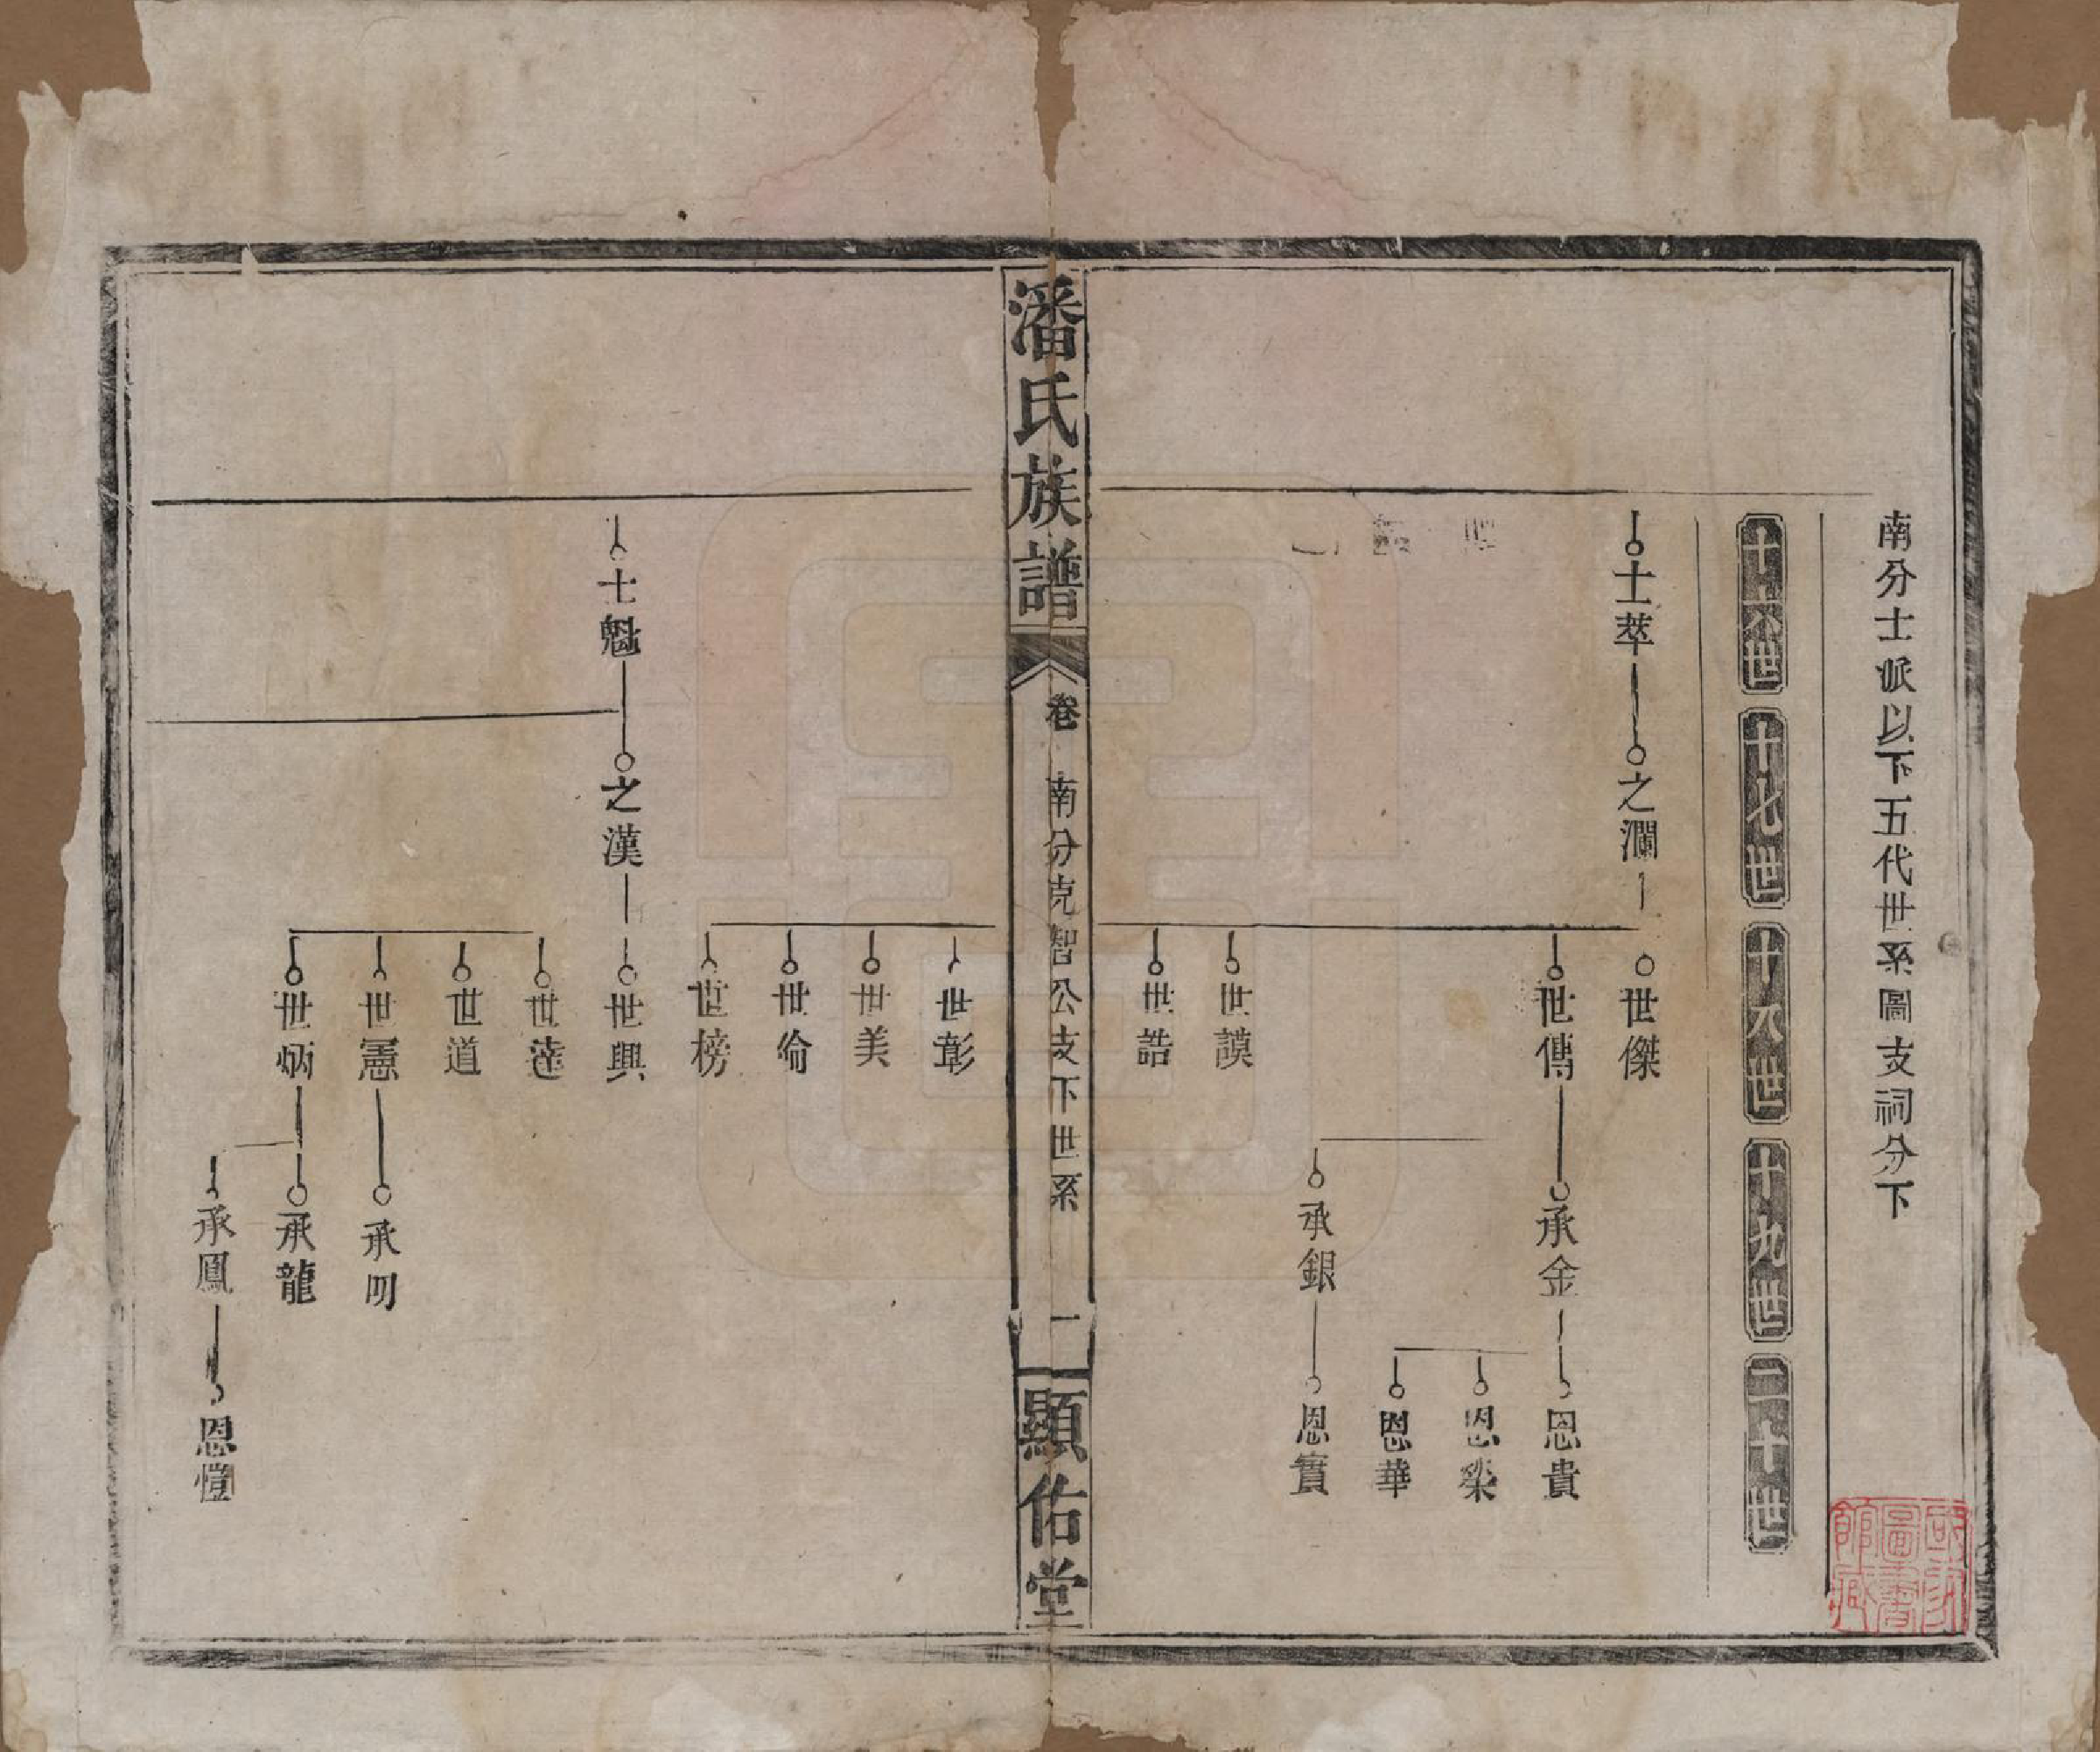 南分士派以下五代世系圖支祠分下
十六世
十七世
十八世
十九世
二十世
士萃
之瀾
世傑
世傳
承金
恩貴
恩榮
恩華
承銀
恩寶
世謨
世誥
潘氏族譜
卷
南分克智公支下世系
一
顯佑堂
世彰
世美
世倫
世榜
士魁
之漢
世興
世達
世道
世憲
承明
世炳
承龍
承鳳
恩愷
國家圖書館藏